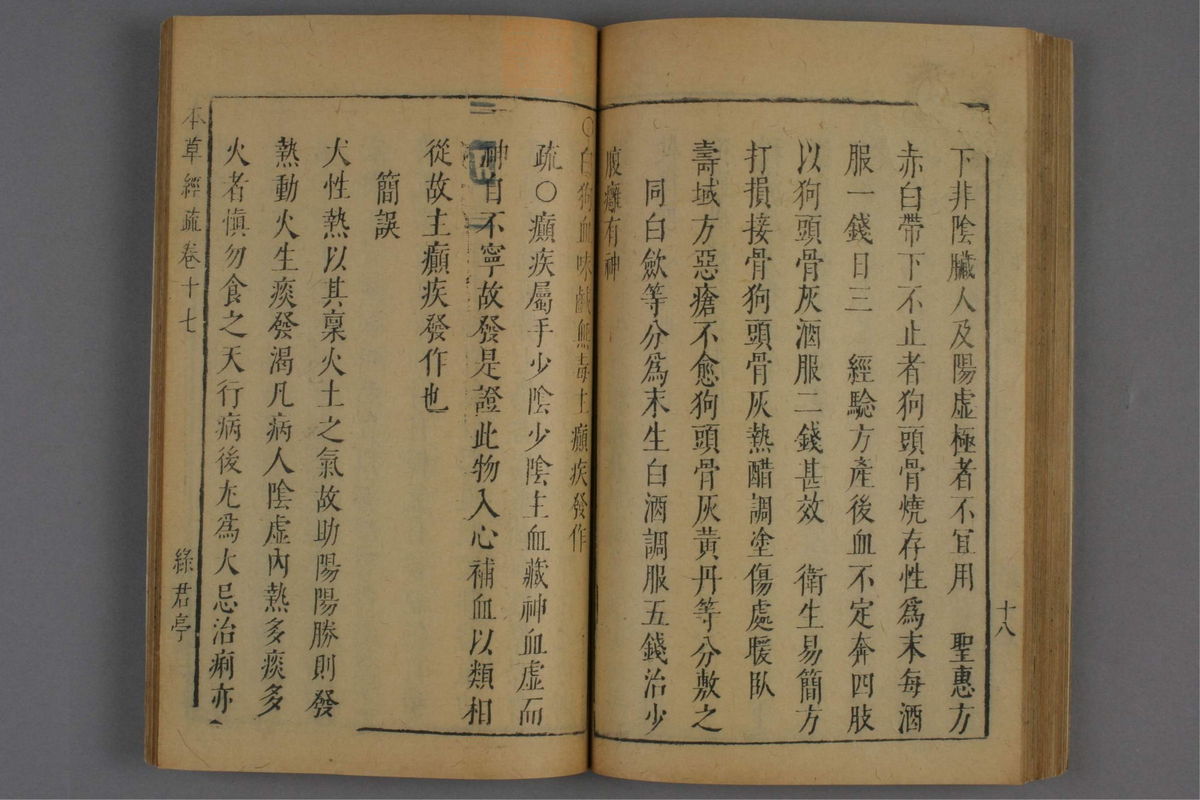 十八
下非陰臟人及陽虛極者不宜用　聖惠方
赤白帶下不止者狗頭骨燒存性爲末每酒
服一錢日三　經驗方產後血不定奔四肢
以狗頭骨灰酒服二錢甚效　衛生易簡方
打損接骨狗頭骨灰熱醋調塗傷處暖臥
壽域方惡瘡不愈狗頭骨灰黃丹等分敷之
同白歛等分爲末生白酒調服五錢治少
腹癰有神
○白狗血味鹹無毒主癲疾發作
疏○癲疾屬手少陰少陰主血藏神血虛而
神自不寧故發是證此物入心補血以類相
從故主癲疾發作也
簡誤
犬性熱以其稟火土之氣故助陽陽勝則發
熱動火生痰發渴凡病人陰虛內熱多痰多
火者愼勿食之天行病後尢爲大忌治痢亦
本草經疏卷十七
綠君亭